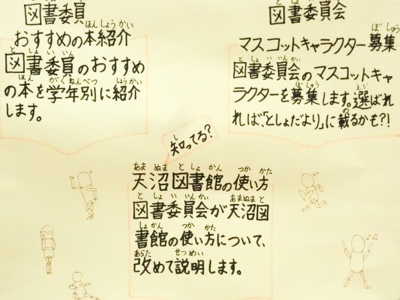 図書委員
おすすめの本紹介
図書委員のおすすめ
の本を学年別に紹介
します。
図書委員会
マスコットキャラクター募集
図書委員会のマスコットキャ
ラクターを募集します。選ばれ
れば「としょだより」に載るかも?!
知ってる?
天沼図書館の使い方
図書委員会が天沼図
書館の使い方について、
改めて説明します。